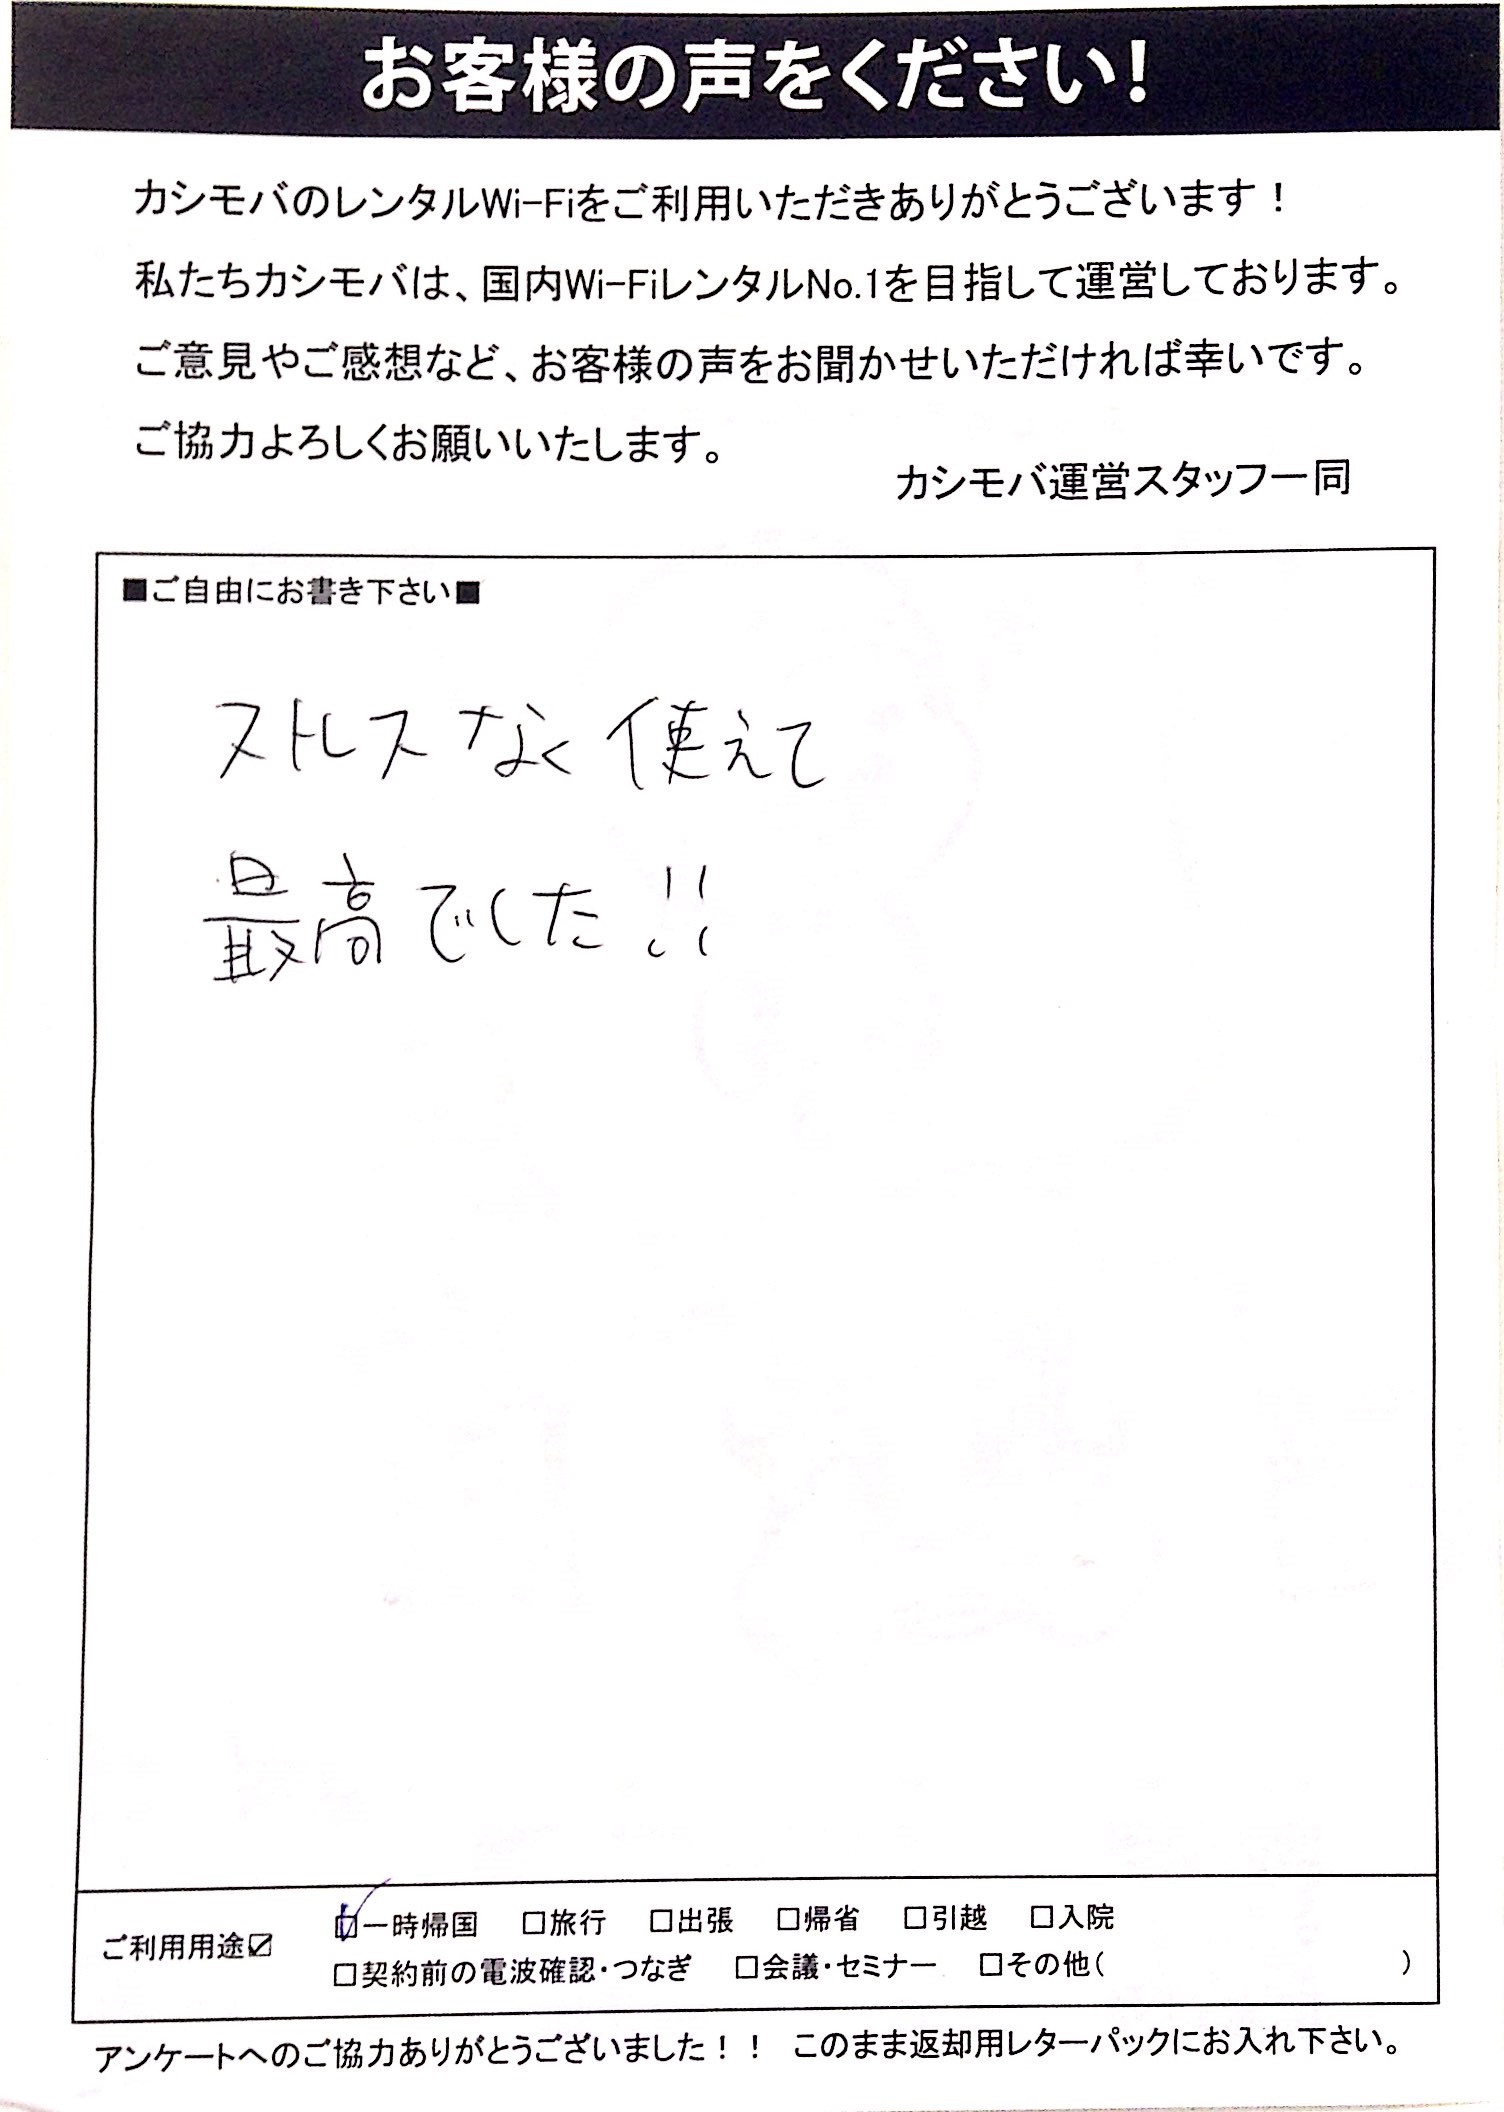 お客様の声をください!
カシモバのレンタルWi-Fiをご利用いただきありがとうございます！
私たちカシモバは、国内Wi-FiレンタルNo.1を目指して運営しております。
ご意見やご感想など、お客様の声をお聞かせいただければ幸いです。
ご協力よろしくお願いいたします。
カシモバ運営スタッフ一同
■ご自由にお書き下さい■
ストレスなく使えて
最高でした!!
ご利用用途☑ ☑一時帰国 □旅行 □出張 □帰省 □引越 □入院
□契約前の電波確認・つなぎ □会議・セミナー □その他( )
アンケートへのご協力ありがとうございました！！ このまま返却用レターパックにお入れ下さい。